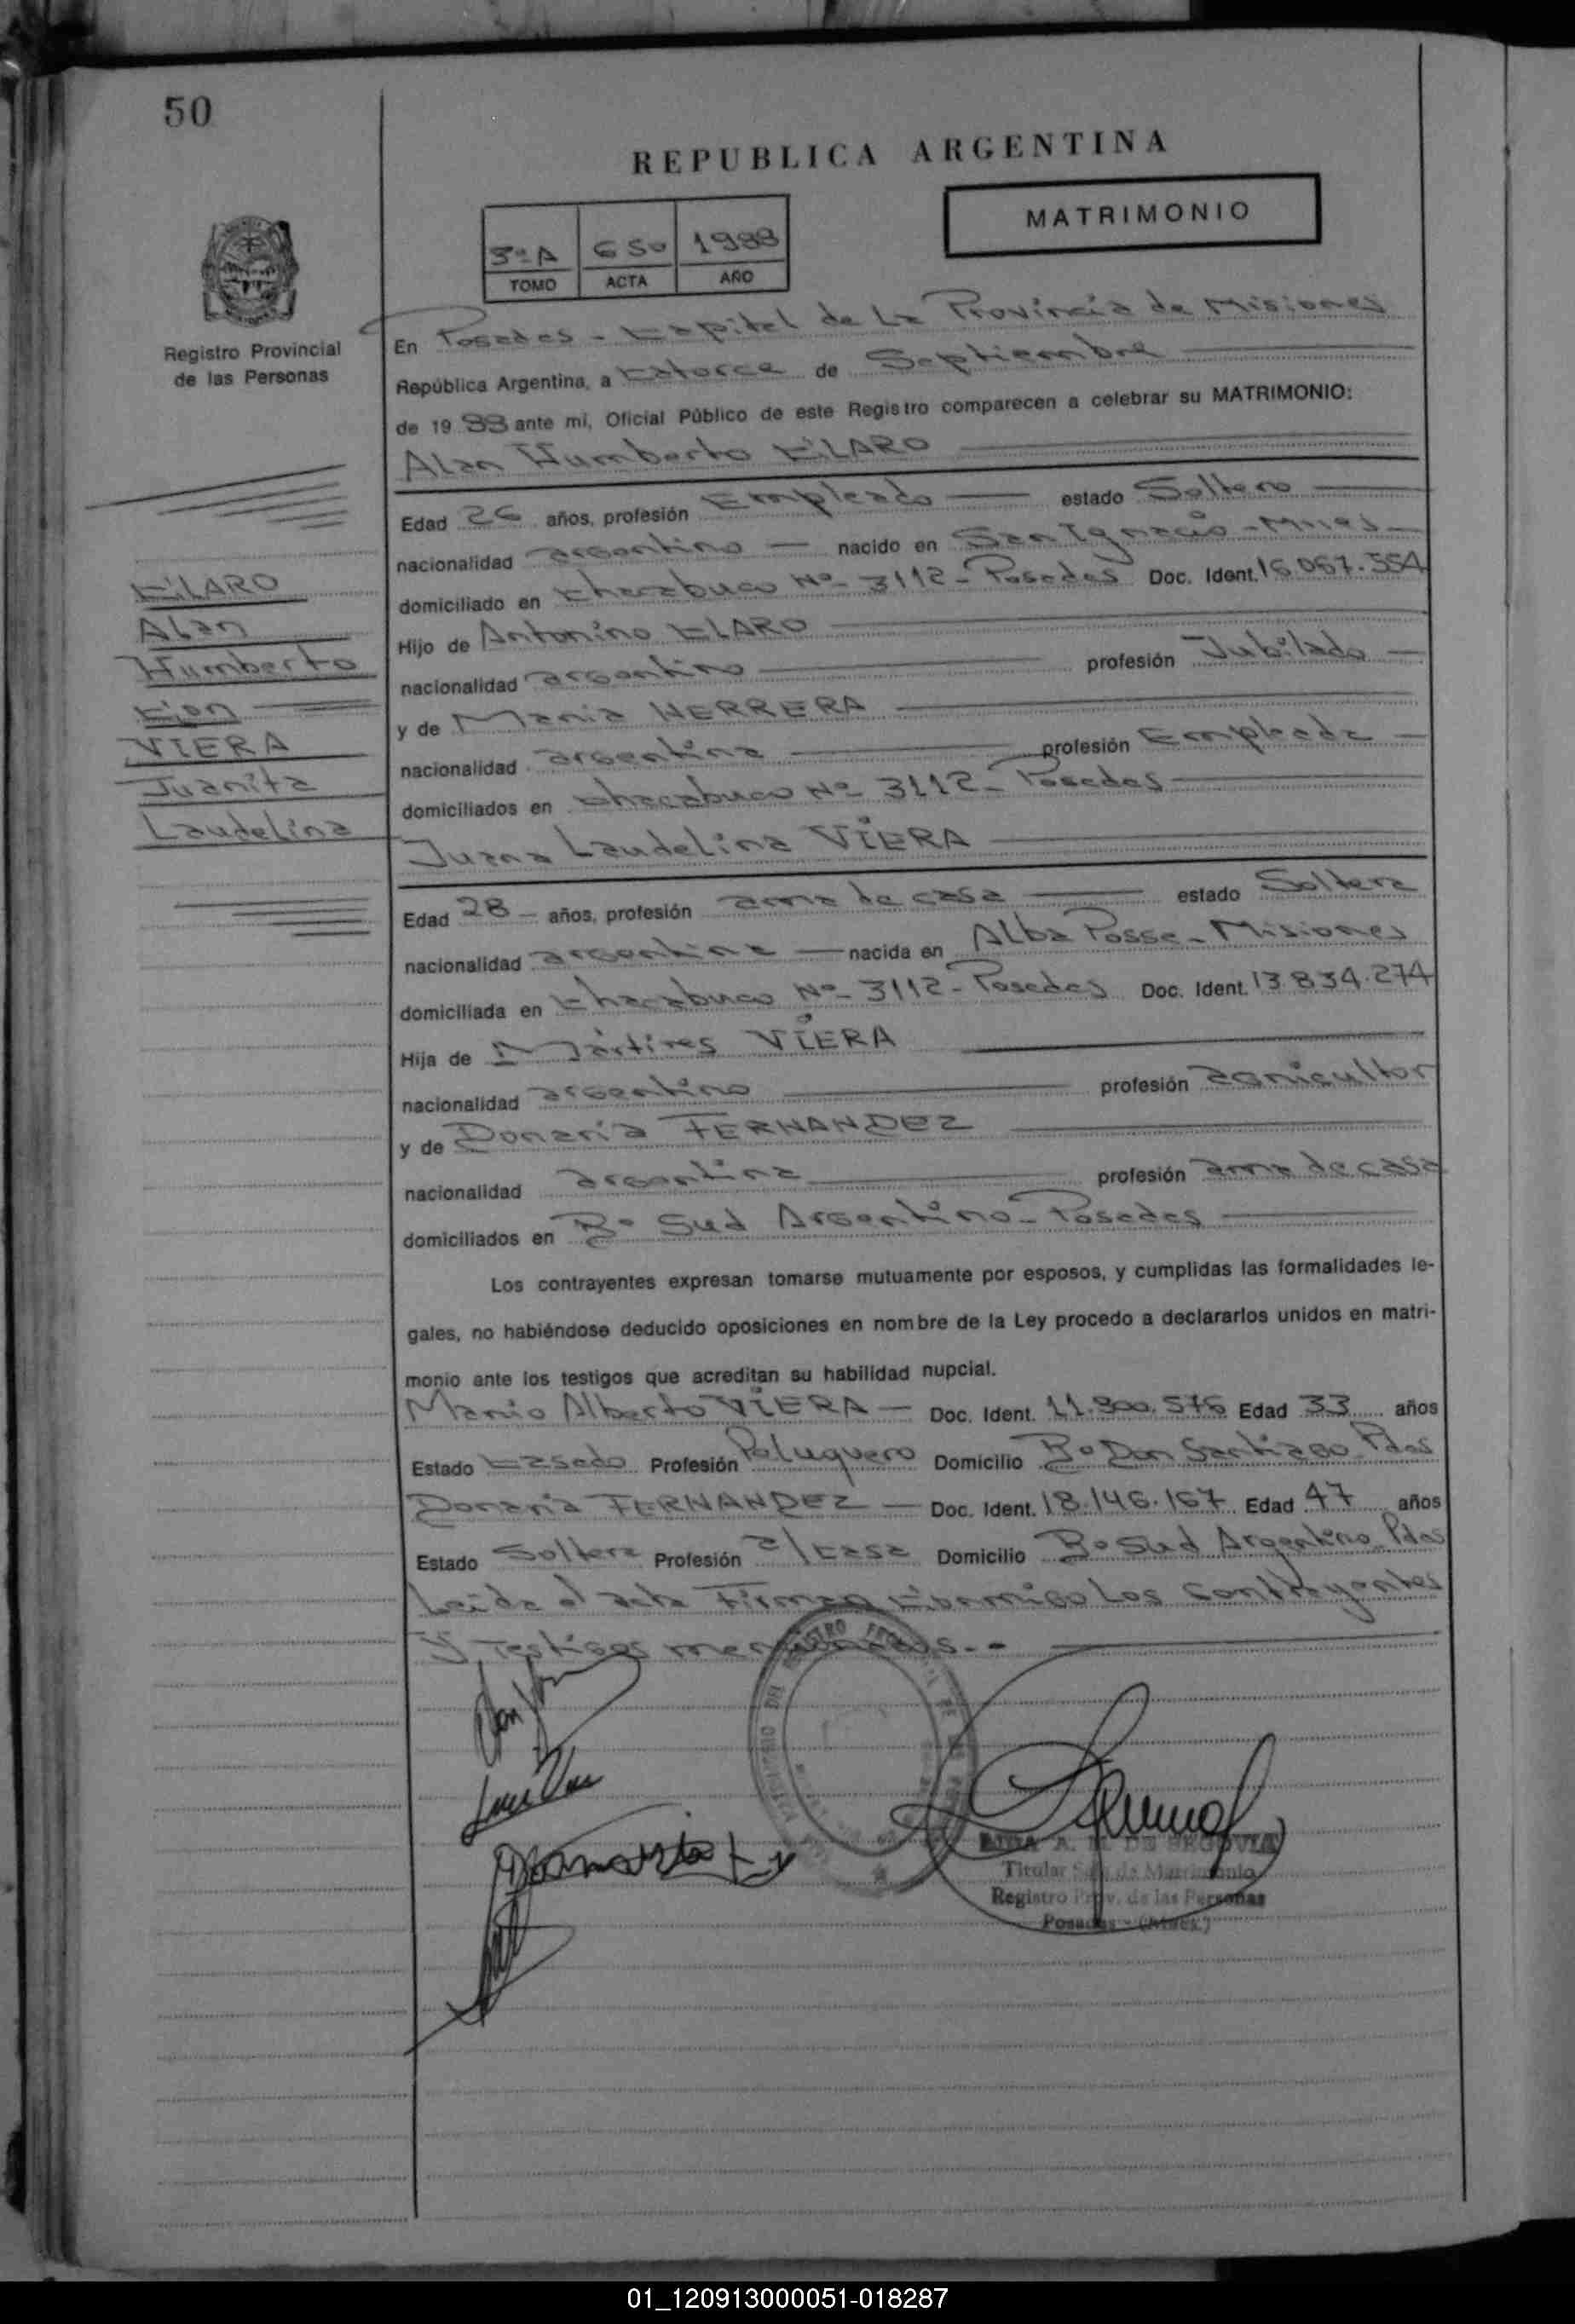 50
REPUBLICA ARGENTINA
MATRIMONIO
3º A 650 1988
TOMO ACTA AÑO
Registro Provincial
de las Personas
En Posadas - Capital de La Provincia de Misiones
República Argentina, a Catorce de Septiembre
de 19 88 ante mí, Oficial Público de este Registro comparecen a celebrar su MATRIMONIO:
Alan Humberto CLARO
Edad 26 años, profesión Empleado estado Soltero
nacionalidad argentino nacido en San Ignacio - Mnes
domiciliado en Chacabuco Nº 3112 - Posadas Doc. Ident. 16.067.554
Hijo de Antonino CLARO
nacionalidad argentino profesión Jubilado
y de Maria HERRERA
nacionalidad argentina profesión Empleada
domiciliados en Chacabuco Nº 3112 - Posadas
Juana Laudelina VIERA
CLARO
Alan
Humberto
Con
VIERA
Juanita
Laudelina
Edad 28 años, profesión ama de casa estado Soltera
nacionalidad argentina nacida en Alba Posse - Misiones
domiciliada en Chacabuco Nº 3112 - Posadas Doc. Ident. 13.834.274
Hija de Mártires VIERA
nacionalidad argentino profesión agricultor
y de Donaria FERNANDEZ
nacionalidad argentina profesión ama de casa
domiciliados en Bº Sud Argentino - Posadas
Los contrayentes expresan tomarse mutuamente por esposos, y cumplidas las formalidades le-
gales, no habiéndose deducido oposiciones en nombre de la Ley procedo a declararlos unidos en matri-
monio ante los testigos que acreditan su habilidad nupcial.
Mario Alberto VIERA Doc. Ident. 11.900.576 Edad 33 años
Estado Casado Profesión Peluquero Domicilio Bº Don Santiago Pdas
Donaria FERNANDEZ Doc. Ident. 18.146.167 Edad 47 años
Estado Soltera Profesión a/casa Domicilio Bº Sud Argentino Pdas
Leida el acta Firman Conmigo Los Contrayentes
y Testigos mencionados.-
DEL REGISTRO
A. M. DE SEGOVIA
Titular Sec. de Matrimonio
Registro Prov. de las Personas
Posadas - (Mnes.)
01_120913000051-018287